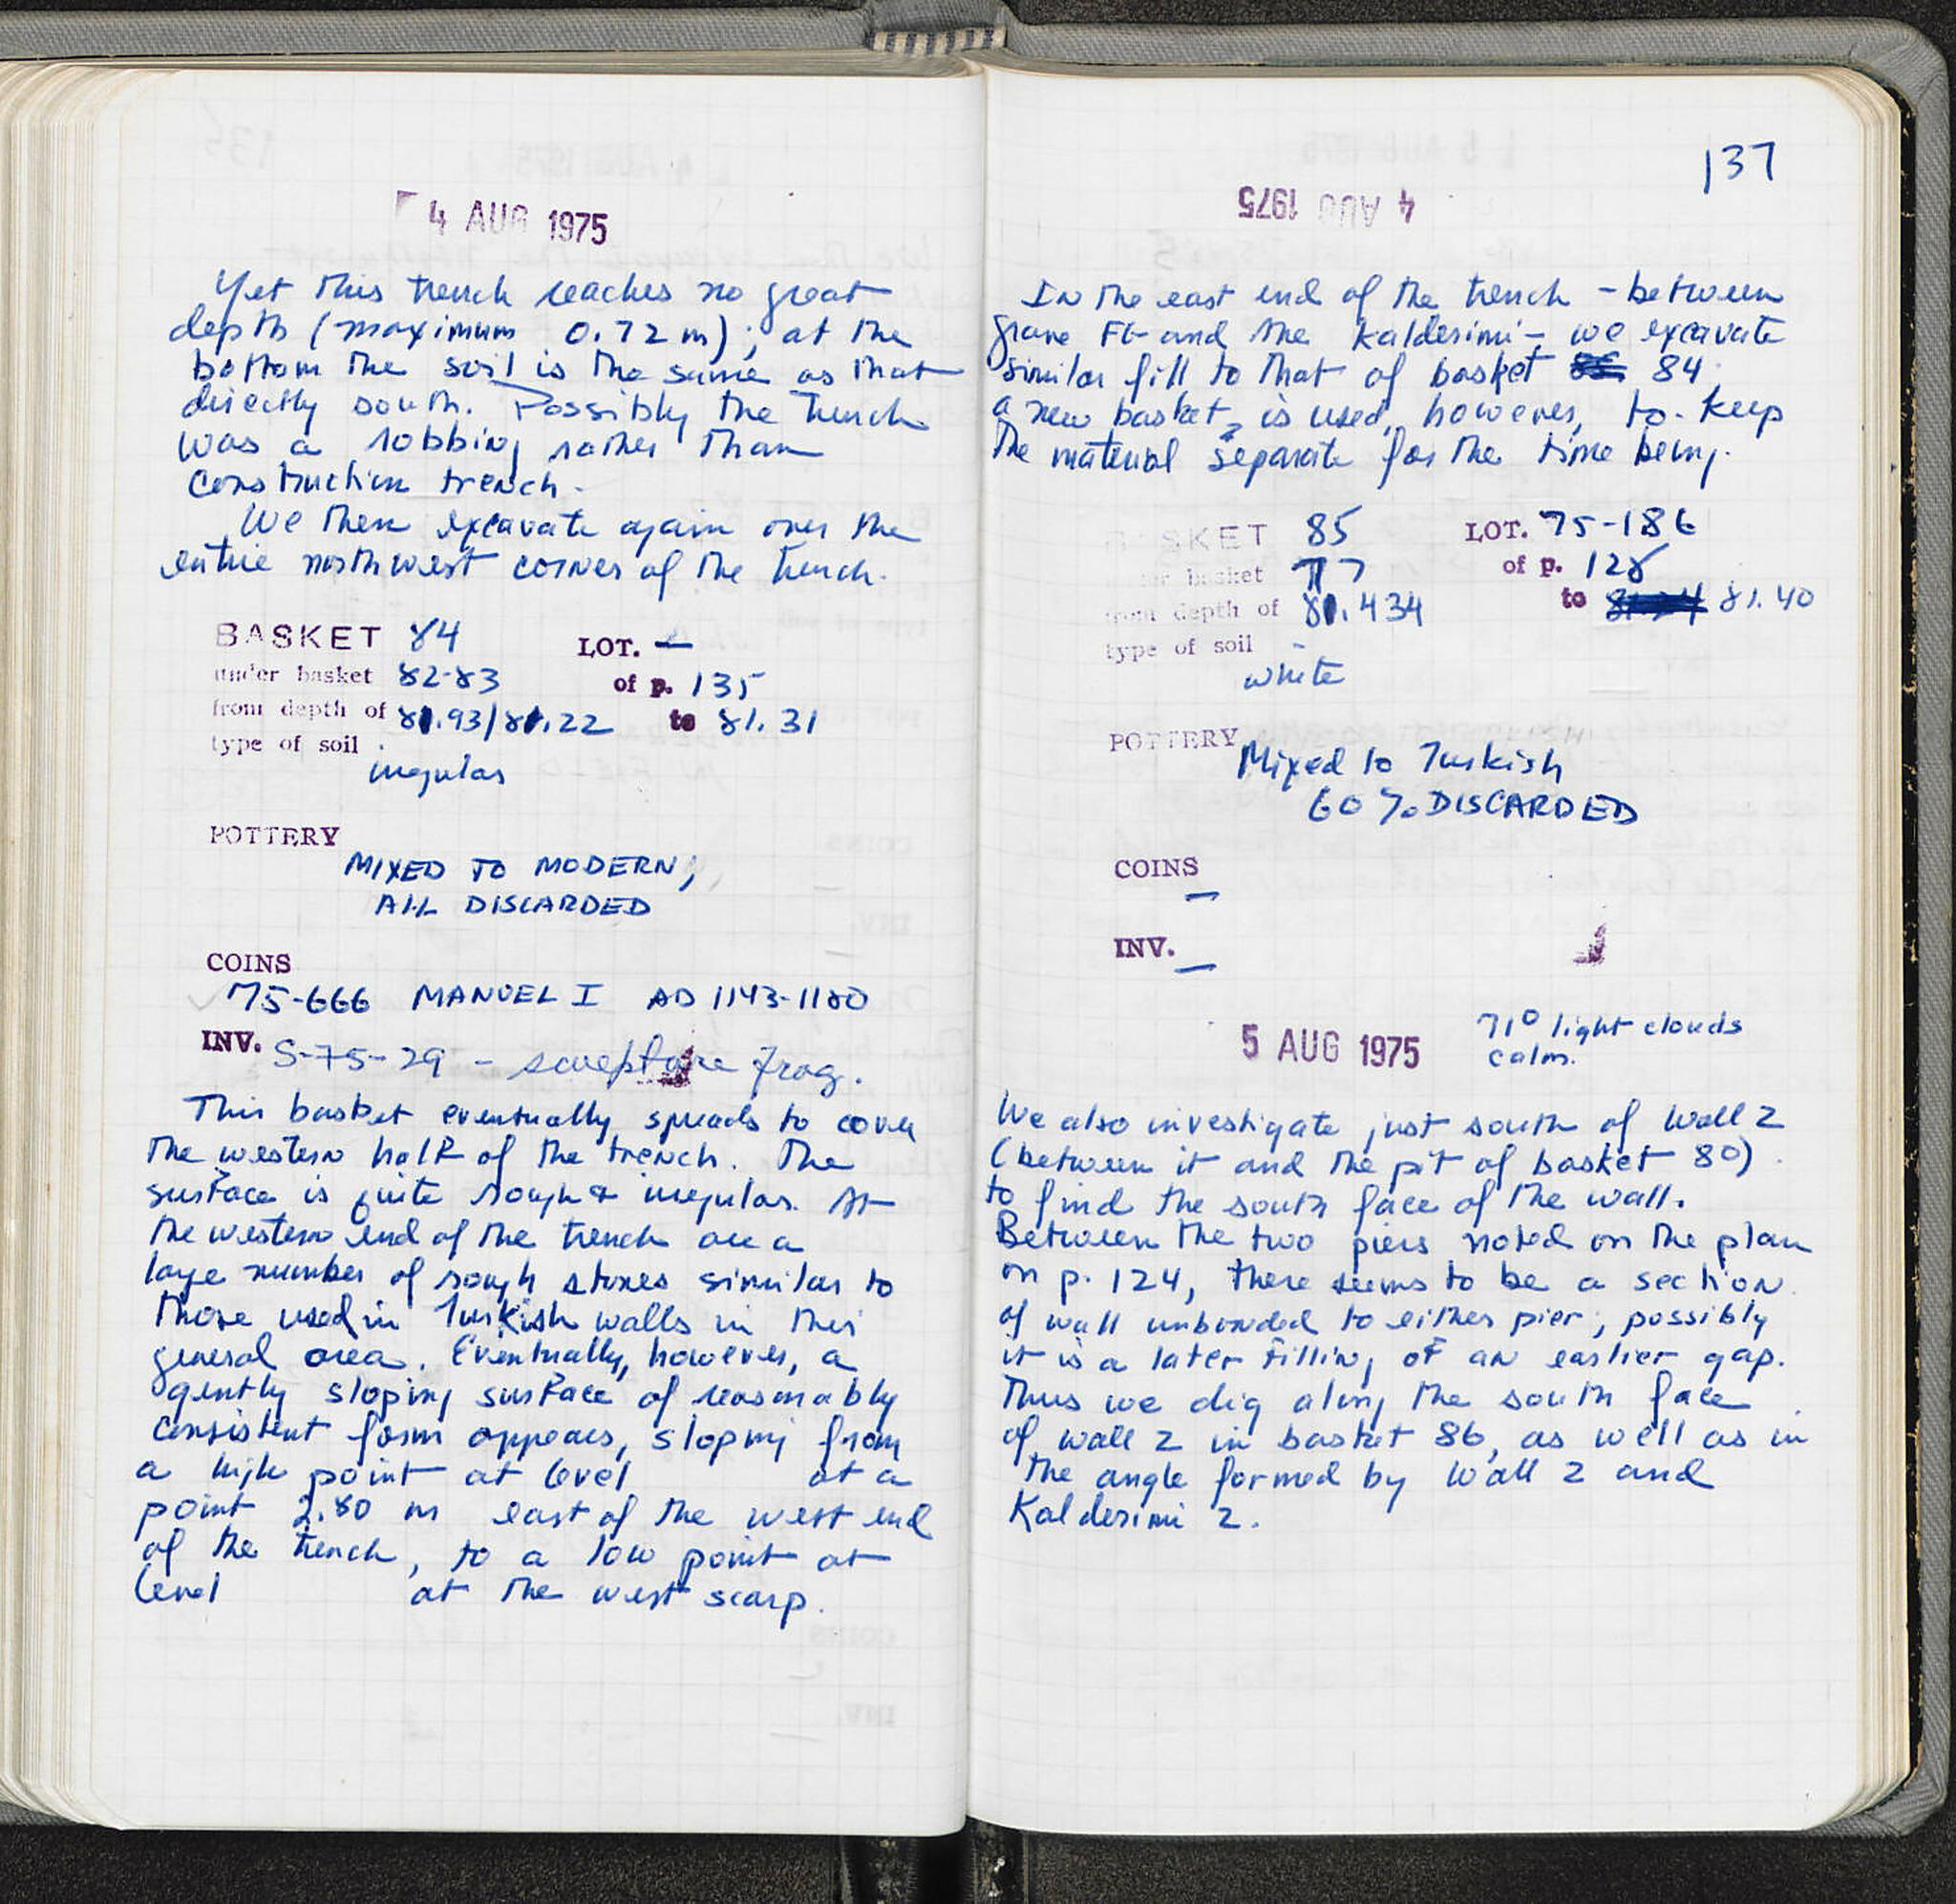 4 AUG 1975
Yet this trench reaches no great
depth (maximum 0.72 m); at the
bottom the soil is the same as that
directly south. Possibly the trench
was a robbing rather than
construction trench.
We then excavate again over the
entire northwest corner of the trench.
BASKET 84 LOT. —
under basket 82-83 of p. 135
from depth of 81.93/81.22 to 81.31
type of soil
irregular
POTTERY
MIXED TO MODERN,
ALL DISCARDED
COINS
75-666 MANUEL I AD 1143-1180
INV. S-75-29 - sculpture frag.
This basket eventually spreads to cover
the western half of the trench. The
surface is quite rough & irregular. At
the western end of the trench are a
large number of rough stones similar to
those used in Turkish walls in this
general area. Eventually, however, a
gently sloping surface of reasonably
consistent form appears, sloping from
a high point at level at a
point 2.80 m east of the west end
of the trench, to a low point at
level at the west scarp.
137
4 AUG 1975
In the east end of the trench - between
grave FG and the Kalderimi - we excavate
similar fill to that of basket 84.
a new basket, is used, however, to keep
the material separate for the time being.
BASKET 85 LOT. 75-186
under basket 77 of p. 128
from depth of 81.434 to 81.40
type of soil
white
POTTERY Mixed to Turkish
60% DISCARDED
COINS
—
INV. —
5 AUG 1975 71° light clouds
calm.
We also investigate just south of Wall 2
(between it and the pit of basket 80)
to find the south face of the wall.
Between the two piers noted on the plan
on p. 124, there seems to be a section
of wall unbonded to either pier; possibly
it is a later filling of an earlier gap.
Thus we dig along the south face
of wall 2 in basket 86, as well as in
the angle formed by Wall 2 and
Kalderimi 2.